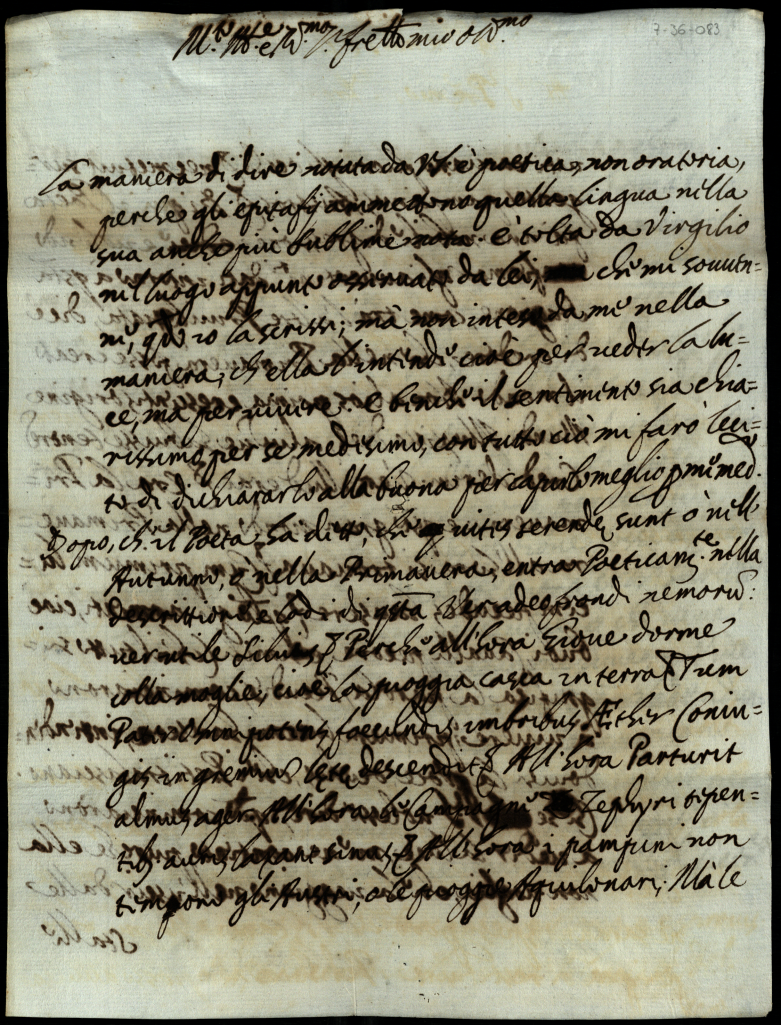 7-36-083
M.to Ill.e R.mo S.r frello mio oss.mo
La maniera di dire notata da V.S. è poetica, non oratoria,
perche gli epitafij ammettono quella lingua nella
sua anche più sublime nota. è tolta da Virgilio
nel luogo appunto osservato da lei, che mi souuen=
ne, qdo io la scrissi; mà non intesa da me nella
maniera, ch'ella l'intende cioè per ueder la lu=
ce, ma per uiuere. e benche il sentimento sia chia=
rissimo per se medesimo, con tutto ciò mi farò leci=
to di dichiararlo alla buona per capirlo meglio p me med.o
Dopo, che il Poeta ha detto, che uites serende sunt ò nell'
Autunno, ò nella Primauera, entra Poeticam.te nella
descrittione e lodi di qsta. Ver adeo frondi nemorũ:
uer utile siluis. Perche all'hora Gioue dorme
colla moglie, cioè la pioggia casca in terra. Tum
Pater omnipotens foecundis imbribus Æther Coniu=
gis in gremium lete descendit. All'hora Parturit
almus ager. All'hora le Campagne Zephyri tepen=
tibs auris laxant sinus. All'hora i pampini non
temono gli Austri, ò le pioggie Aquilonari; Mà le